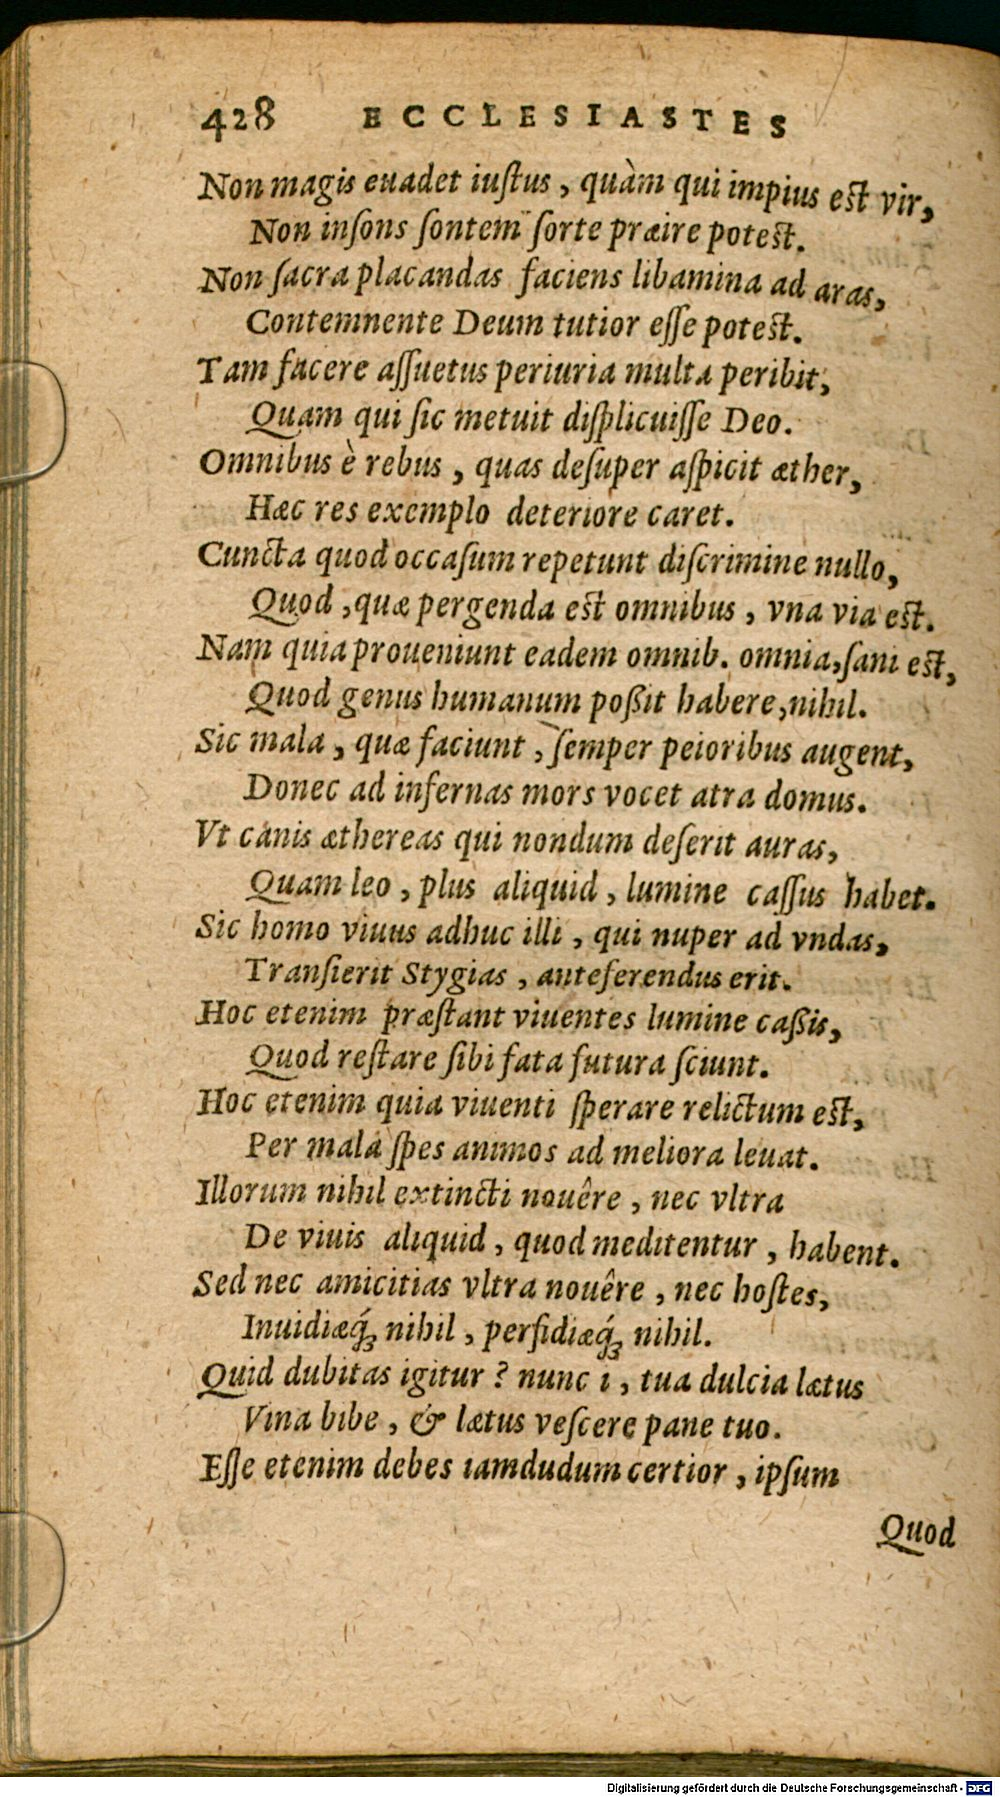 428 ECCLESIASTES
Non magis euadet iuſtus, quàm qui impius eſt vir,
Non inſons ſontem ſorte præire poteſt.
Non ſacra placandas faciens libamina ad aras,
Contemnente Deum tutior eſſe poteſt.
Tam facere aſſuetus periuria multa peribit,
Quam qui ſic metuit diſplicuiſſe Deo.
Omnibus è rebus, quas deſuper aſpicit æther,
Hæc res exemplo deteriore caret.
Cuncta quod occaſum repetunt diſcrimine nullo,
Quod, quæ pergenda eſt omnibus, vna via eſt.
Nam quia proueniunt eadem omnib. omnia, ſani eſt,
Quod genus humanum poßit habere, nihil.
Sic mala, quæ faciunt, ſemper peioribus augent,
Donec ad infernas mors vocet atra domus.
Vt canis æthereas qui nondum deſerit auras,
Quam leo, plus aliquid, lumine caſſus habet.
Sic homo viuus adhuc illi, qui nuper ad vndas,
Tranſierit Stygias, anteferendus erit.
Hoc etenim præſtant viuentes lumine caßis,
Quod reſtare ſibi fata futura ſciunt.
Hoc etenim quia viuenti ſperare relictum eſt,
Per mala ſpes animos ad meliora leuat.
Illorum nihil extincti nouêre, nec vltra
De viuis aliquid, quod meditentur, habent.
Sed nec amicitias vltra nouêre, nec hoſtes,
Inuidiæq́ꝫ nihil, perfidiæq́ꝫ nihil.
Quid dubitas igitur? nunc i, tua dulcia lætus
Vina bibe, & lætus veſcere pane tuo.
Eſſe etenim debes iamdudum certior, ipſum
Quod
Digitalisierung gefördert durch die Deutsche Forschungsgemeinschaft - DFG